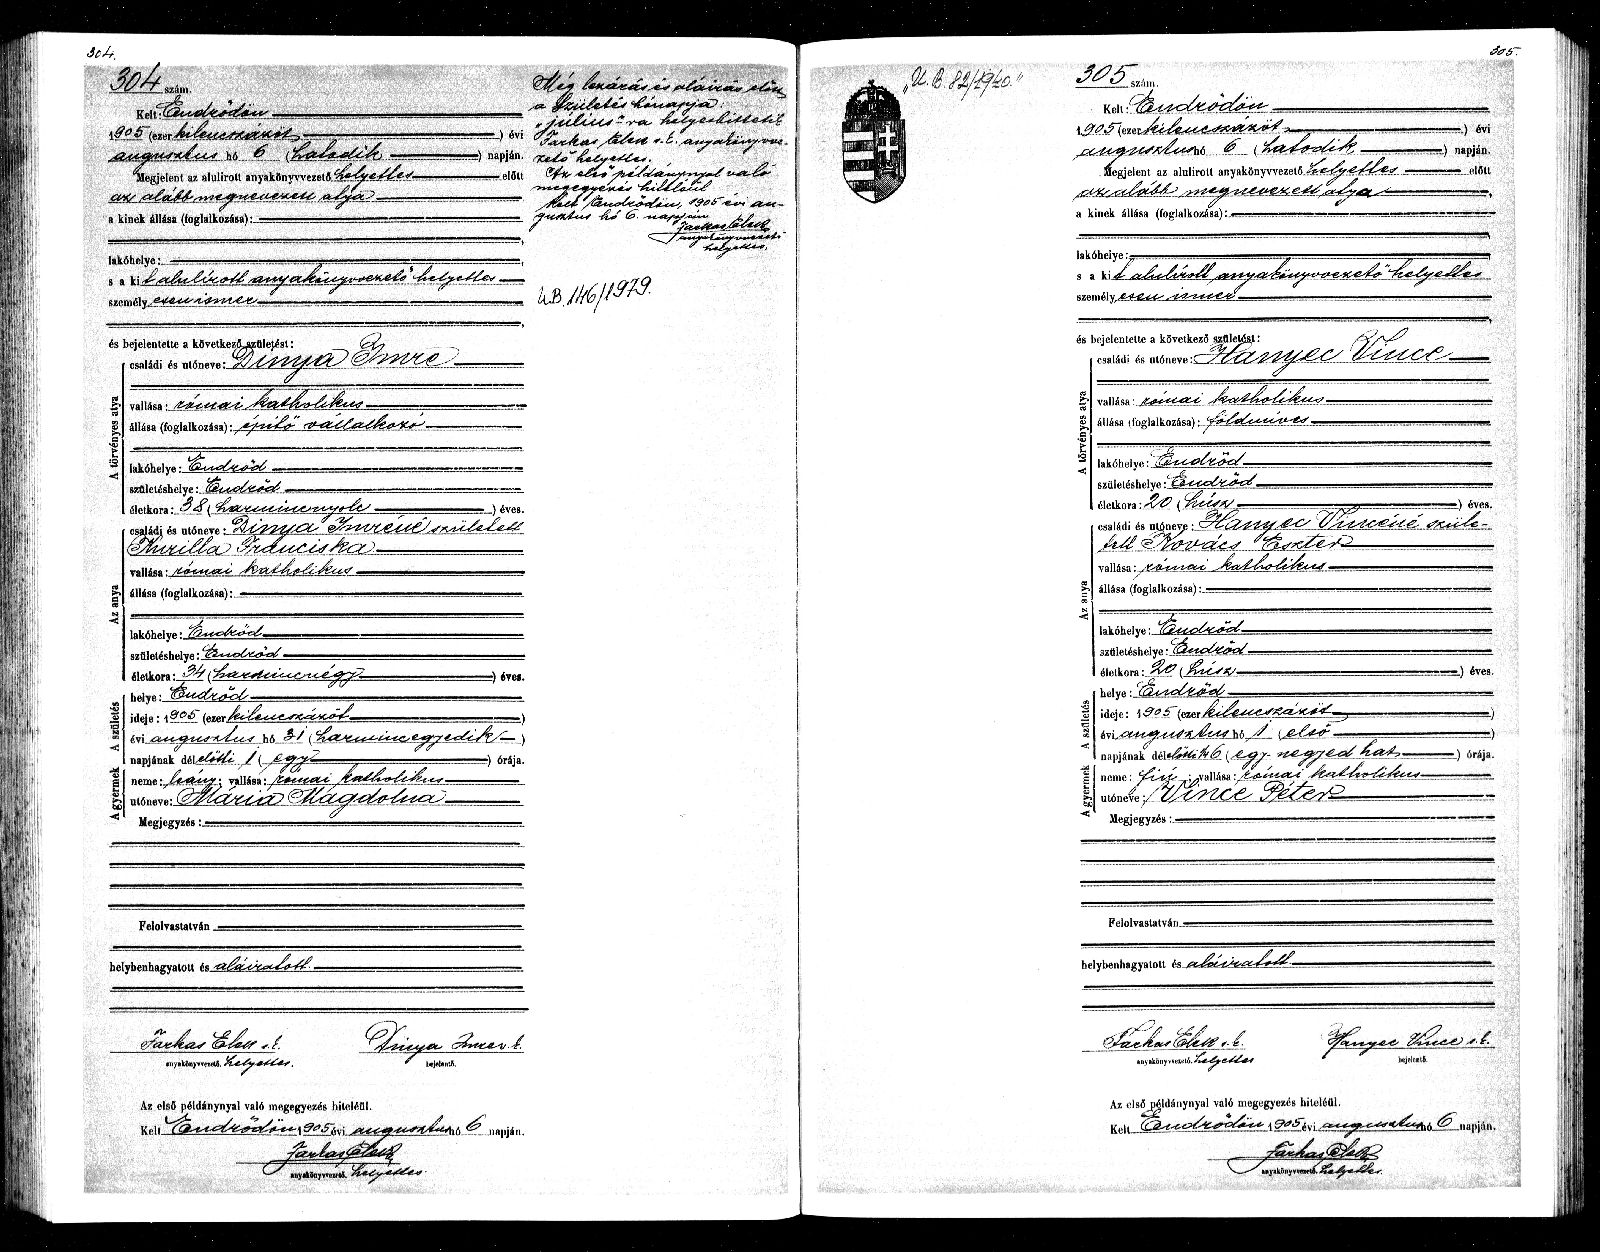 304.
304 szám.
Kelt: Endrődön
1905 (ezer kilenczszázöt) évi
augusztus hó 6 (hatodik) napján.
Megjelent az alulirott anyakönyvvezető helyettes előtt
az alább megnevezett atya
a kinek állása (foglalkozása):
lakóhelye:
s a kit alulírott anyakönyvvezető helyettes
személyesen ismer
és bejelentette a következő születést:
A törvényes atya
családi és utóneve: Dinya Imre
vallása: római katholikus
állása (foglalkozása): építő vállalkozó
lakóhelye: Endrőd
születéshelye: Endrőd
életkora: 38 (harmincnyolc) éves.
Az anya
családi és utóneve: Dinya Imréné született
Kurilla Franciska
vallása: római katholikus
állása (foglalkozása):
lakóhelye: Endrőd
születéshelye: Endrőd
életkora: 34 (harmincnégy) éves.
A születés
helye: Endrőd
ideje: 1905 (ezer kilencszázöt)
évi augusztus hó 31 (harmincegyedik)
napjának délelőtti 1 (egy) órája.
A gyermek
neme: leány; vallása: római katholikus
utóneve: Mária Magdolna
Megjegyzés:
Felolvastatván
helybenhagyatott és aláiratott.
Farkas Elek s. k. Dinya Imre s. k.
anyakönyvvezető. helyettes. bejelentő.
Az első példánynyal való megegyezés hiteléül.
Kelt Endrődön 1905 évi augusztus hó 6 napján.
Farkas Elek
anyakönyvvezető. helyettes.
Még lezárás és aláírás előtt
a születés hónapja:
„július"-ra helyesbíttetik
Farkas Elek s. k. anyakönyvve-
zető helyettes.
Az első példánynyal való
megegyezés hiteléül
kelt Endrődön, 1905 évi au-
gusztus hó 6. napján
Farkas Elek
anyakönyvvezető
helyettes.
U.B. 146/1979.
305.
„U. B. 82/1940."
305 szám.
Kelt: Endrődön
1905 (ezer kilencszázöt) évi
augusztus hó 6 (hatodik) napján.
Megjelent az alulirott anyakönyvvezető helyettes előtt
az alább megnevezett atya
a kinek állása (foglalkozása):
lakóhelye:
s a kit alulírott anyakönyvvezető helyettes
személyesen ismer
és bejelentette a következő születést:
A törvényes atya
családi és utóneve: Hanyec Vince
vallása: római katholikus
állása (foglalkozása): földmíves
lakóhelye: Endrőd
születéshelye: Endrőd
életkora: 20 (húsz) éves.
Az anya
családi és utóneve: Hanyec Vincéné szüle-
tett Kovács Eszter
vallása: római katholikus
állása (foglalkozása):
lakóhelye: Endrőd
születéshelye: Endrőd
életkora: 20 (húsz) éves.
A születés
helye: Endrőd
ideje: 1905 (ezer kilencszázöt)
évi augusztus hó 1 (első)
napjának délelőtti ¼6 (egy negyed hat) órája.
A gyermek
neme: fiú; vallása: római katholikus
utóneve: Vince Péter
Megjegyzés:
Felolvastatván
helybenhagyatott és aláiratott
Farkas Elek s. k. Hanyec Vince s. k.
anyakönyvvezető. helyettes bejelentő.
Az első példánynyal való megegyezés hiteléül.
Kelt Endrődön 1905 évi augusztus hó 6 napján.
Farkas Elek
anyakönyvvezető. helyettes.